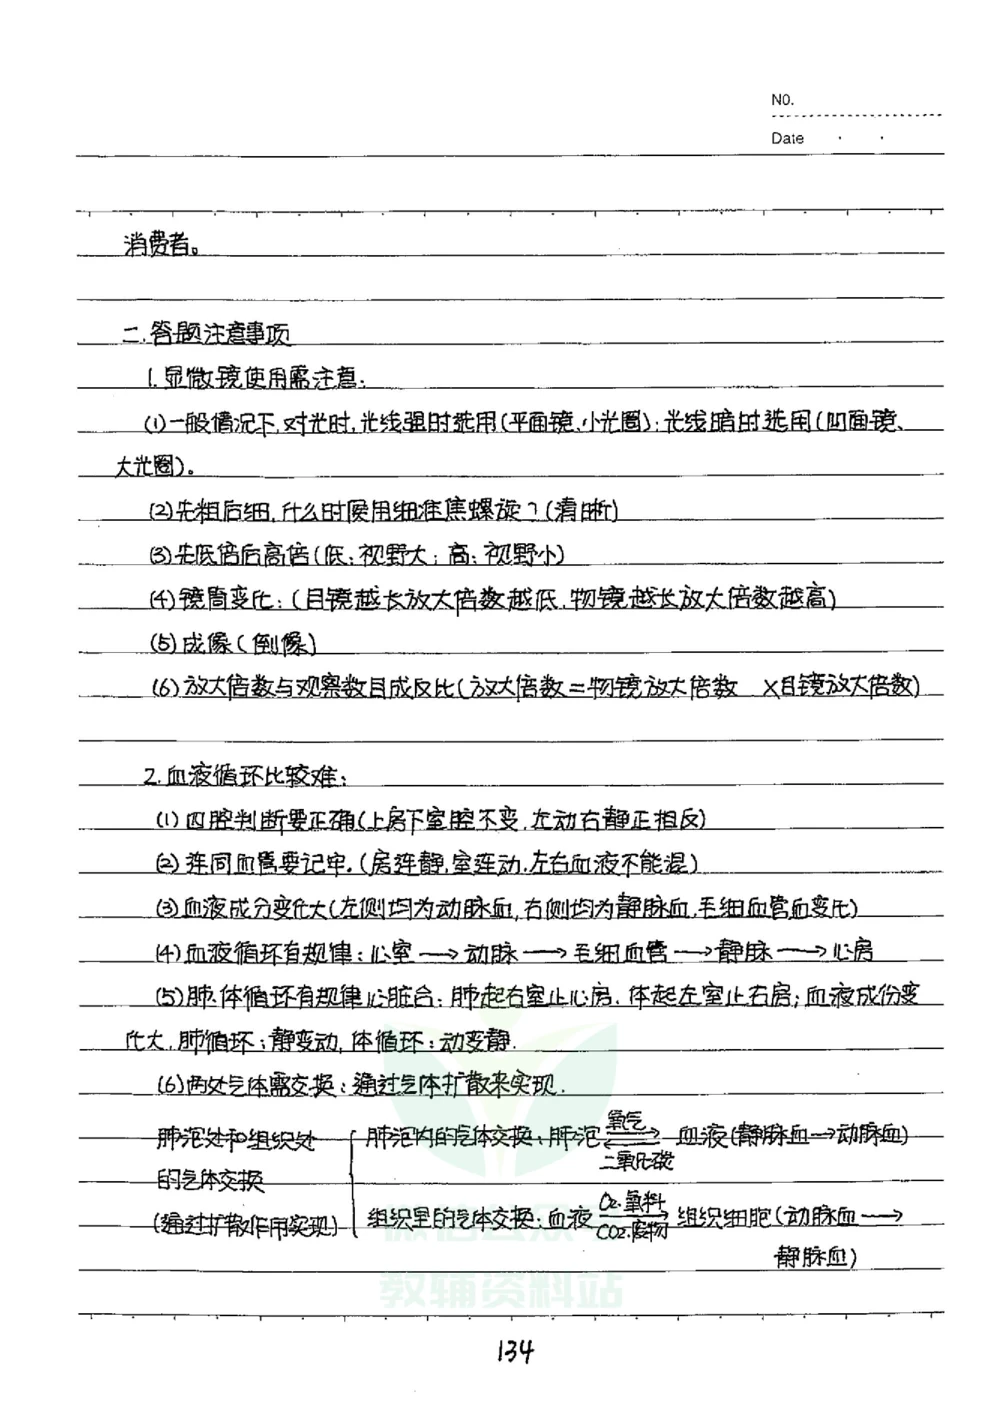 NO.
Date
消费者。
二.答题注意事项
1.显微镜使用需注意:
(1)一般情况下,对光时,光线强时选用(平面镜、小光圈);光线暗时选用(凹面镜、
大光圈)。
(2)先粗后细,什么时候用细准焦螺旋?(清晰)
(3)先低倍后高倍(低:视野大;高:视野小)
(4)镜筒变化:(目镜越长放大倍数越低,物镜越长放大倍数越高)
(5)成像(倒像)
(6)放大倍数与观察数目成反比(放大倍数=物镜放大倍数 ×目镜放大倍数)
2.血液循环比较难:
(1)四腔判断要正确(上房下室腔不变,左动右静正相反)
(2)连同血管要记牢.(房连静,室连动,左右血液不能混)
(3)血液成分变化大(左侧均为动脉血,右侧均为静脉血,毛细血管血变化)
(4)血液循环有规律:心室→动脉→毛细血管→静脉→心房
(5)肺、体循环有规律心脏合:肺起右室止心房,体起左室止右房;血液成份变
化大,肺循环:静变动,体循环:动变静.
(6)两处气体需交换:通过气体扩散来实现.
肺泡处和组织处
的气体交换
(通过扩散作用实现)
肺泡内的气体交换:肺泡 氧气 ⇌ 二氧化碳 血液(静脉血→动脉血)
组织里的气体交换:血液 O2.氧料 ⇌ CO2.废物 组织细胞(动脉血→
静脉血)
微信公众号
教辅资料站
134